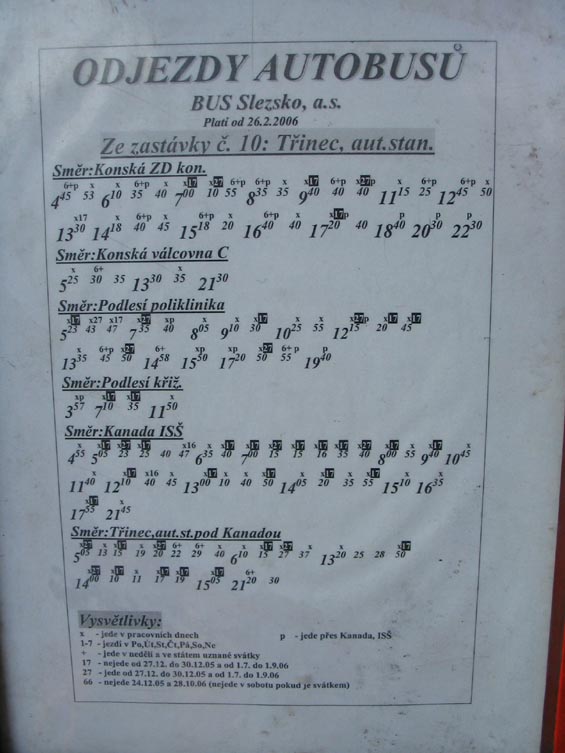 ODJEZDY AUTOBUSŮ
BUS Slezsko, a.s.
Platí od 26.2.2006
Ze zastávky č. 10: Třinec, aut.stan.
Směr:Konská ZD kon.
6+p x x 6+p x x17 x27 6+p 6+p x x17 6+p x27p x 6+p 6+p x
4 45 53 6 10 35 40 7 00 10 55 8 35 35 9 40 40 40 11 15 25 12 45 50
x17 x 6+p x 6+p x 6+p x x17p p p p
13 30 14 18 40 45 15 18 20 16 40 40 17 20 40 18 40 20 30 22 30
Směr:Konská válcovna C
x 6+ x
5 25 30 35 13 30 35 21 30
Směr:Podlesí poliklinika
x17 x27 x17 x27 xp x x x17 x x x27p x17 x17
5 25 43 47 7 35 40 8 05 9 10 30 10 25 55 12 15 20 45
x 6+p x27 6+ xp xp x27 6+p p
13 35 45 50 14 58 15 50 17 20 50 55 19 40
Směr:Podlesí křiž.
xp x17 x17 x
3 57 7 10 35 11 50
Směr:Kanada ISŠ
4 55 5 05 23 25 40 47 6 35 40 7 00 15 15 16 35 40 8 00 55 9 40 10 45
x x17 x16 x x17 x x x17 x x x17 x x
11 40 12 10 40 45 13 00 10 40 50 14 05 20 35 55 15 10 16 35
x17 x
17 55 21 45
Směr:Třinec,aut.st.pod Kanadou
5 05 13 15 19 20 22 29 40 6 10 15 27 37 13 20 25 28 50
14 00 10 11 17 19 15 05 21 20 30
Vysvětlivky:
x - jede v pracovních dnech p - jede přes Kanada, ISŠ
1-7 - jezdí v Po,Út,St,Čt,Pá,So,Ne
+ - jede v neděli a ve státem uznané svátky
17 - nejede od 27.12. do 30.12.05 a od 1.7. do 1.9.06
27 - jede od 27.12. do 30.12.05 a od 1.7. do 1.9.06
66 - nejede 24.12.05 a 28.10.06 (nejede v sobotu pokud je svátkem)